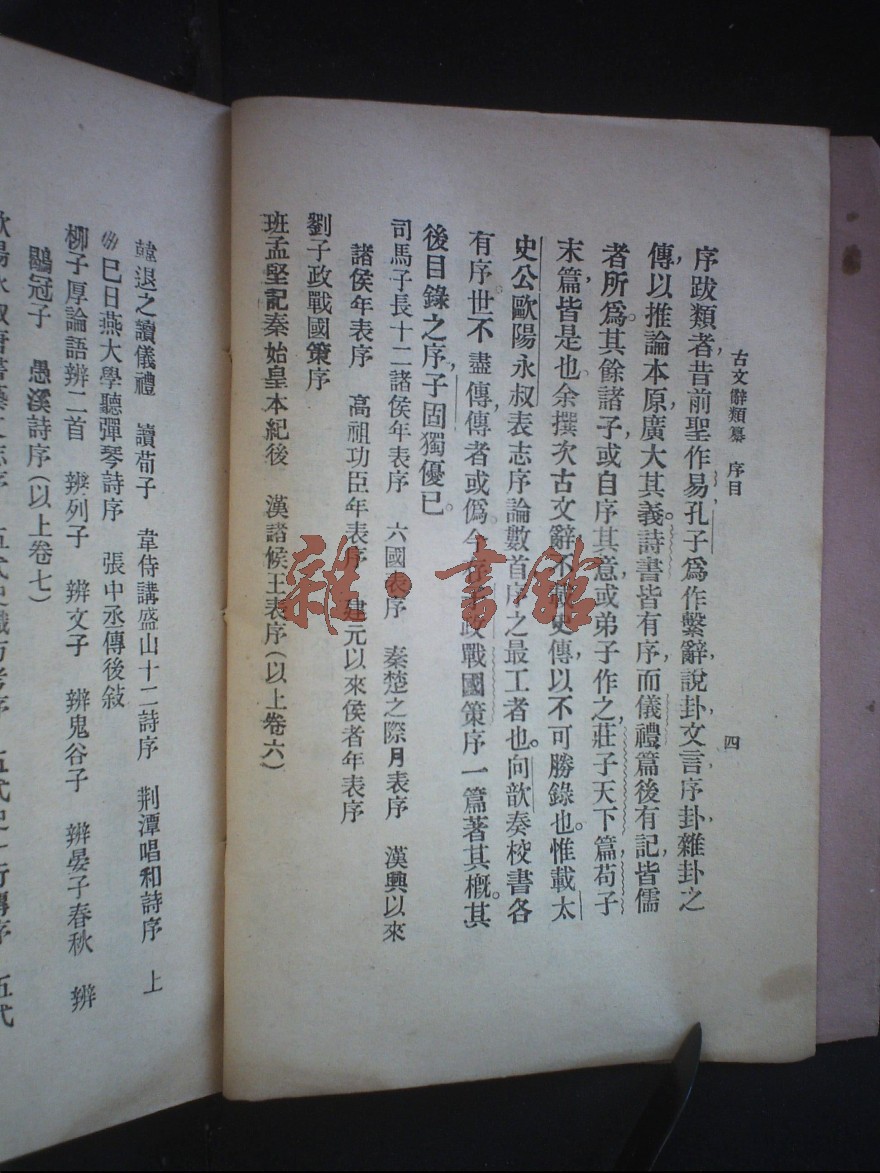 古文辭類纂 序目
四
序跋類者，昔前聖作易，孔子爲作繫辭，說卦，文言，序卦，雜卦之
傳，以推論本原，廣大其義。詩書皆有序，而儀禮篇後有記，皆儒
者所爲。其餘諸子，或自序其意，或弟子作之，莊子天下篇，荀子
末篇，皆是也。余撰次古文辭，不載史傳，以不可勝錄也。惟載太
史公歐陽永叔表志序論數首，序之最工者也。向歆奏校書各
有序，世不盡傳，傳者或僞，今存子政戰國策序一篇，著其概。其
後目錄之序，子固獨優已。
司馬子長十二諸侯年表序 六國表序 秦楚之際月表序 漢興以來
諸侯年表序 高祖功臣年表序 建元以來侯者年表序
劉子政戰國策序
班孟堅記秦始皇本紀後 漢諸候王表序(以上卷六)
韓退之讀儀禮 讀荀子 韋侍講盛山十二詩序 荆潭唱和詩序 上
巳日燕大學聽彈琴詩序 張中丞傳後敍
柳子厚論語辨二首 辨列子 辨文子 辨鬼谷子 辨晏子春秋 辨
鶡冠子 愚溪詩序(以上卷七)
雜·書館